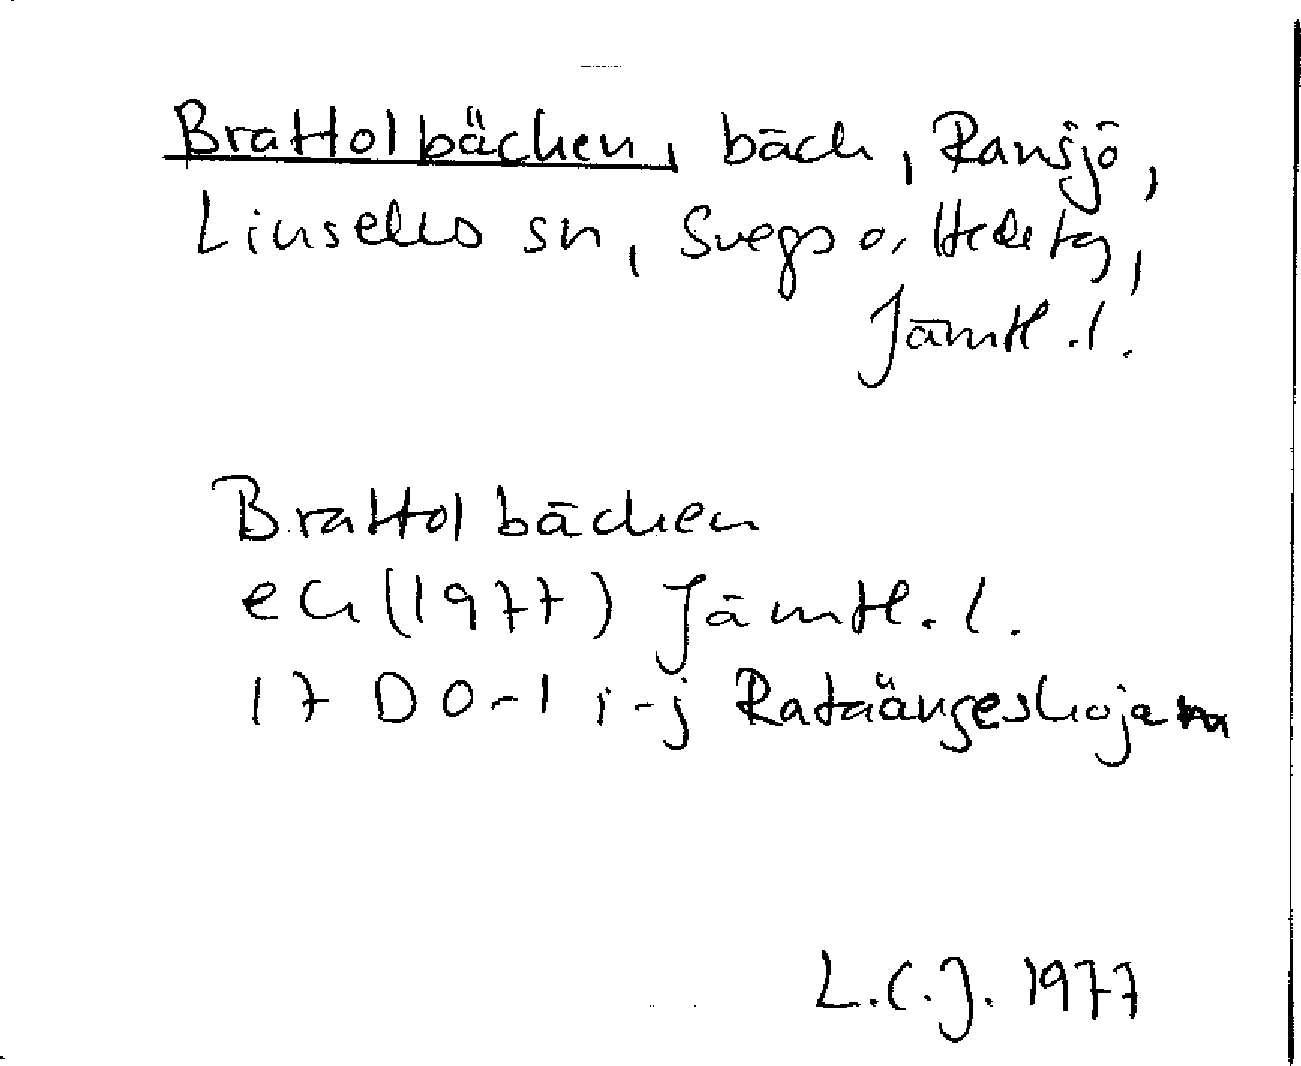 Brattolbäcken, bäck, Ransjö,
Linsells sn, Svegs o. Hede tg,
Jämtl. l.
Brattolbäcken
ek (1977) Jämtl. l.
17 D 0-1 i-j Rataängeskojan
L.C.J. 1977